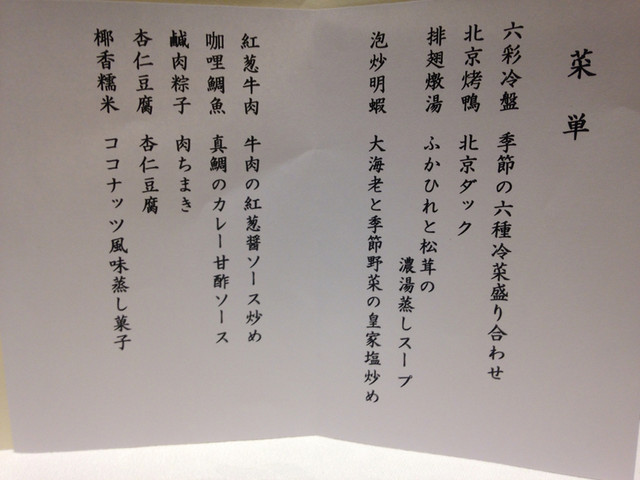 菜単
六彩冷盤 季節の六種冷菜盛り合わせ
北京烤鴨 北京ダック
排翅燉湯 ふかひれと松茸の
濃湯蒸しスープ
泡炒明蝦 大海老と季節野菜の皇家塩炒め
紅葱牛肉 牛肉の紅葱醬ソース炒め
咖哩鯛魚 真鯛のカレー甘酢ソース
鹹肉粽子 肉ちまき
杏仁豆腐 杏仁豆腐
椰香糯米 ココナッツ風味蒸し菓子